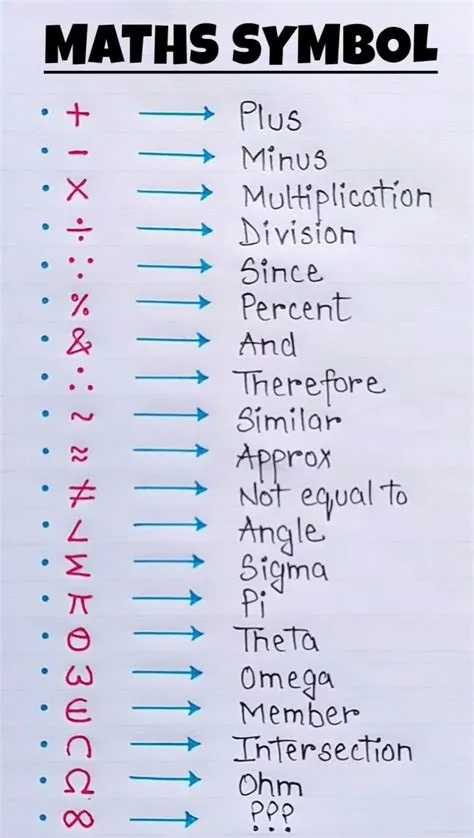 MATHS SYMBOL
• + → Plus
• − → Minus
• × → Multiplication
• ÷ → Division
• ∵ → Since
• % → Percent
• & → And
• ∴ → Therefore
• ~ → Similar
• ≈ → Approx
• ≠ → Not equal to
• ∠ → Angle
• Σ → Sigma
• π → Pi
• θ → Theta
• ω → Omega
• ∈ → Member
• ∩ → Intersection
• Ω → Ohm
• ∞ → ???